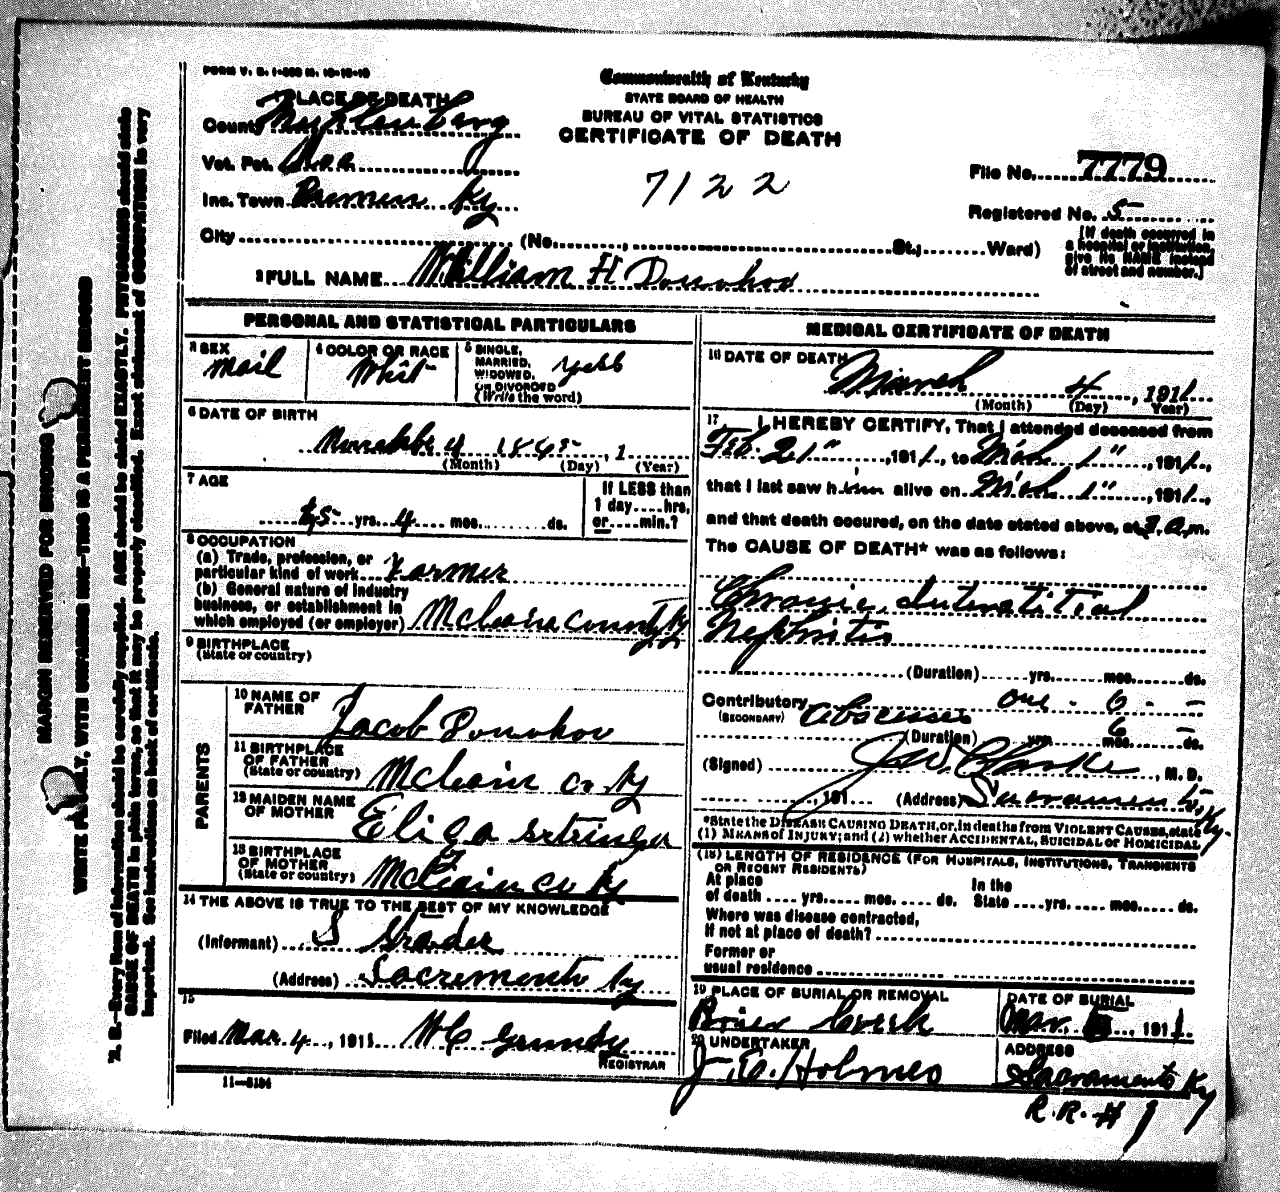 FORM V. S. 1-
Commonwealth of Kentucky
STATE BOARD OF HEALTH
BUREAU OF VITAL STATISTICS
CERTIFICATE OF DEATH
1 PLACE OF DEATH
County Muhlenberg
Vot. Pct.
Inc. Town Bremen Ky
City (No. , St.; Ward)
7122
File No. 7779
Registered No. 5
[If death occurred in
a hospital or institution,
give its NAME instead
of street and number.]
2 FULL NAME William H Donohoo
PERSONAL AND STATISTICAL PARTICULARS
3 SEX
mail
4 COLOR OR RACE
Whit
5 SINGLE,
MARRIED,
WIDOWED,
OR DIVORCED
(Write the word)
6 DATE OF BIRTH
4 1845, 1
(Month) (Day) (Year)
7 AGE
65 yrs. 4 mos. ds.
If LESS than
1 day....hrs.
or....min.?
8 OCCUPATION
(a) Trade, profession, or
particular kind of work Farmer
(b) General nature of industry
business, or establishment in
which employed (or employer) McLean County Ky
9 BIRTHPLACE
(State or country)
PARENTS
10 NAME OF
FATHER Jacob Donohoo
11 BIRTHPLACE
OF FATHER
(State or country) McLain co Ky
12 MAIDEN NAME
OF MOTHER Eliza Stringer
13 BIRTHPLACE
OF MOTHER
(State or country) McClain co Ky
14 THE ABOVE IS TRUE TO THE BEST OF MY KNOWLEDGE
(Informant) S
(Address) Sacremento Ky
15
Filed Mar 4, 1911 H C Grundy
REGISTRAR
11—5184
MEDICAL CERTIFICATE OF DEATH
16 DATE OF DEATH
March 4, 1911
(Month) (Day) (Year)
17 I HEREBY CERTIFY, That I attended deceased from
Feb. 21", 1911, to Mch 1", 1911,
that I last saw him alive on Mch 1", 1911,
and that death occured, on the date stated above, at 3 a.m.
The CAUSE OF DEATH* was as follows:
Chronic Interstitial
Nephritis
(Duration) yrs. mos. ds.
one - 6 -
Contributory Abscesses
(SECONDARY)
6 -
(Duration) yrs. mos. ds.
(Signed) J W Clarke, M. D.
, 191 (Address) Sacramento, Ky.
*State the DISEASE CAUSING DEATH, or, in deaths from VIOLENT CAUSES, state
(1) MEANS OF INJURY; and (2) whether ACCIDENTAL, SUICIDAL or HOMICIDAL
(18) LENGTH OF RESIDENCE (FOR HOSPITALS, INSTITUTIONS, TRANSIENTS
OR RECENT RESIDENTS)
At place
of death .... yrs. .... mos. .... ds.
In the
State .... yrs. .... mos. .... ds.
Where was disease contracted,
If not at place of death?
Former or
usual residence
19 PLACE OF BURIAL OR REMOVAL
Brier Creek
DATE OF BURIAL
Mar. 5, 1911
20 UNDERTAKER
J. E. Holmes
ADDRESS
Sacramento Ky
R.R. # 1
MARGIN RESERVED FOR BINDING
WRITE PLAINLY, WITH UNFADING INK—THIS IS A PERMANENT RECORD
N. B.—Every item of information should be carefully supplied. AGE should be stated EXACTLY. PHYSICIANS should state
CAUSE OF DEATH in plain terms, so that it may be properly classified. Exact statement of OCCUPATION is very
important. See instructions on back of certificate.